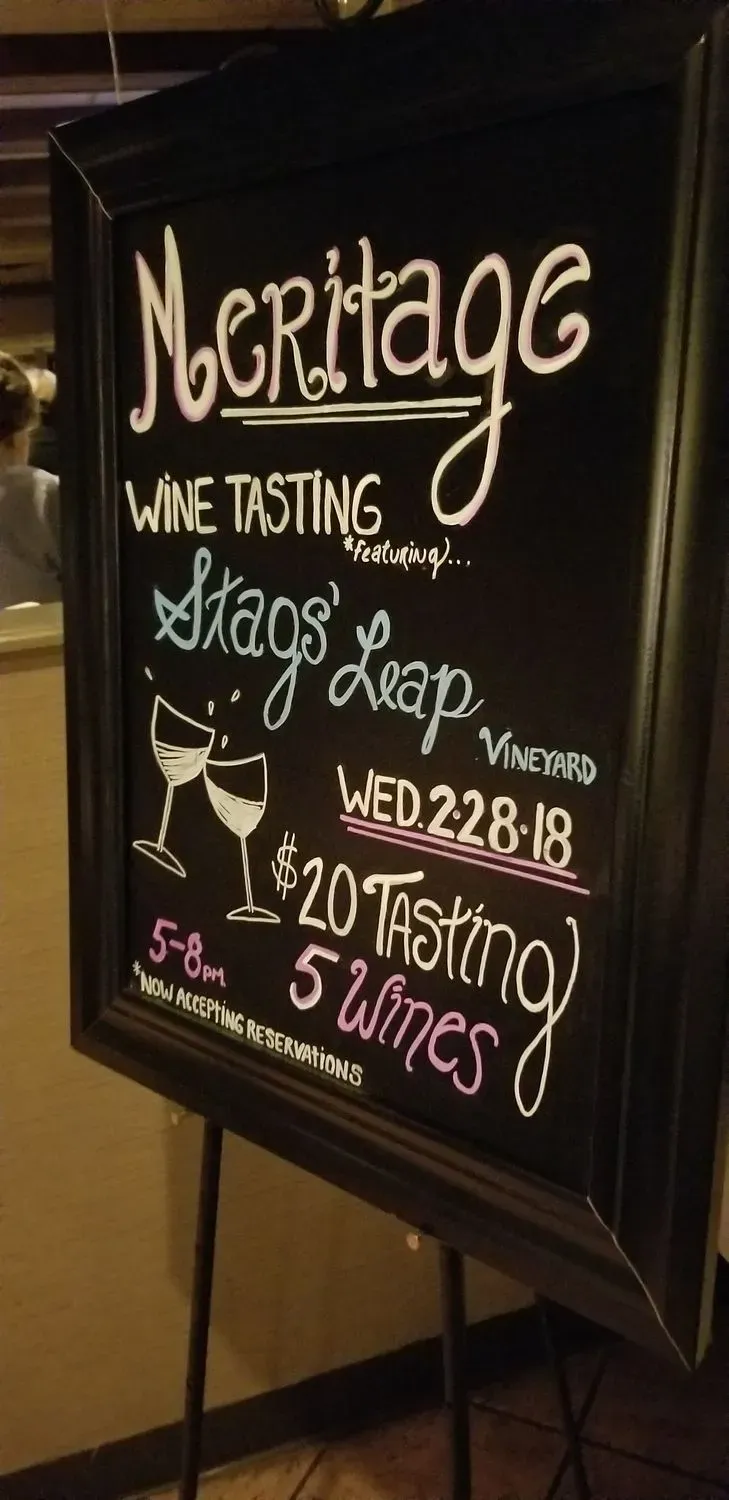 Meritage
WINE TASTING
*featuring...
Stags' Leap
VINEYARD
WED. 2·28·18
$20 Tasting
5-8PM
5 Wines
*NOW ACCEPTING RESERVATIONS